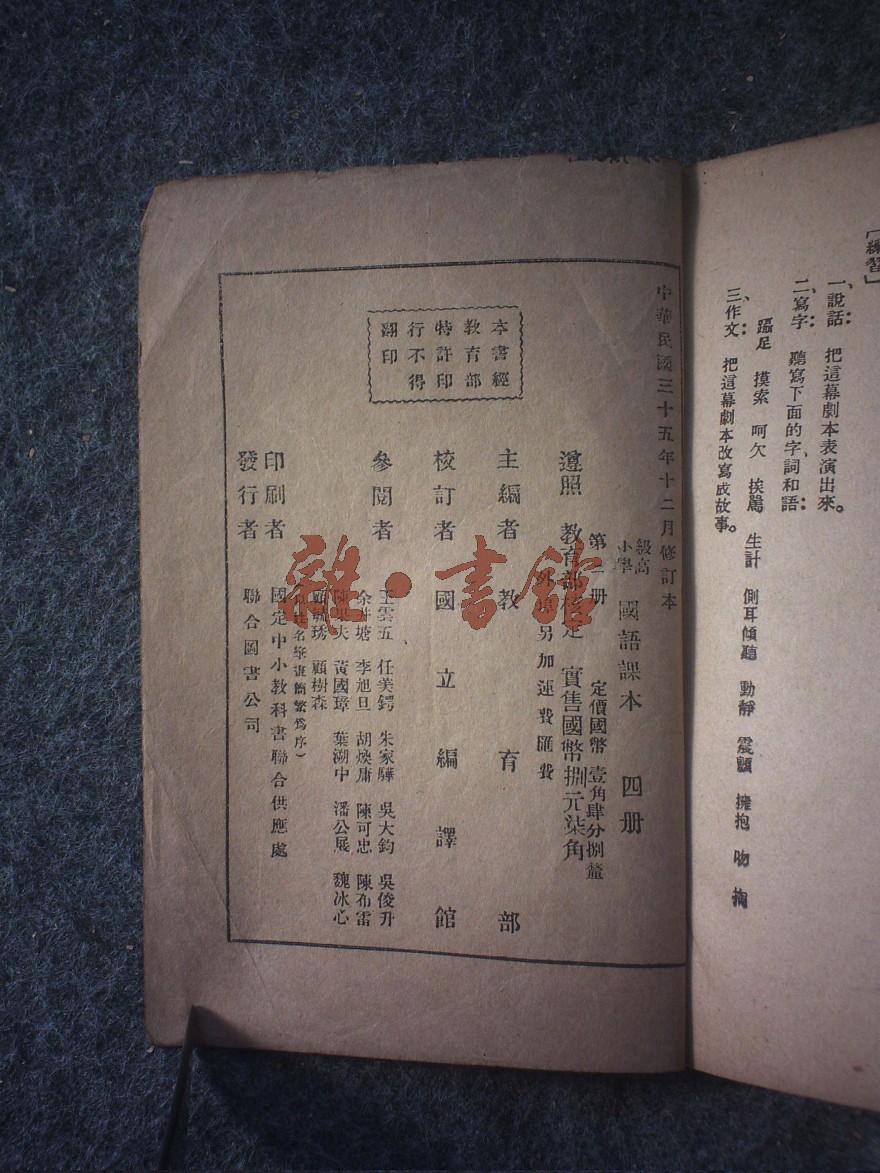 [練習]
一、說話：把這幕劇本表演出來。
二、寫字：聽寫下面的字、詞和語：
躡足 摸索 呵欠 挨罵 生計 側耳傾聽 動靜 震顫 擁抱 吻 掏
三、作文：把這幕劇本改寫成故事。
中華民國三十五年十二月修訂本
高級小學 國語課本 四册
第一册 定價國幣壹角肆分捌釐
遵照教育部核定 實售國幣捌元柒角
外埠另加運費匯費
主編者 教育部
校訂者 國立編譯館
參閱者 王雲五 任美鍔 朱家驊 吳大鈞 吳俊升
余井塘 李旭旦 胡煥庸 陳可忠 陳布雷
陳果夫 黃國璋 葉溯中 潘公展 魏冰心
顧毓琇 顧樹森
(以姓名筆畫簡繁爲序)
印刷者 國定中小教科書聯合供應處
發行者 聯合圖書公司
本書經
教育部
特許印
行不得
翻印
雜·書館